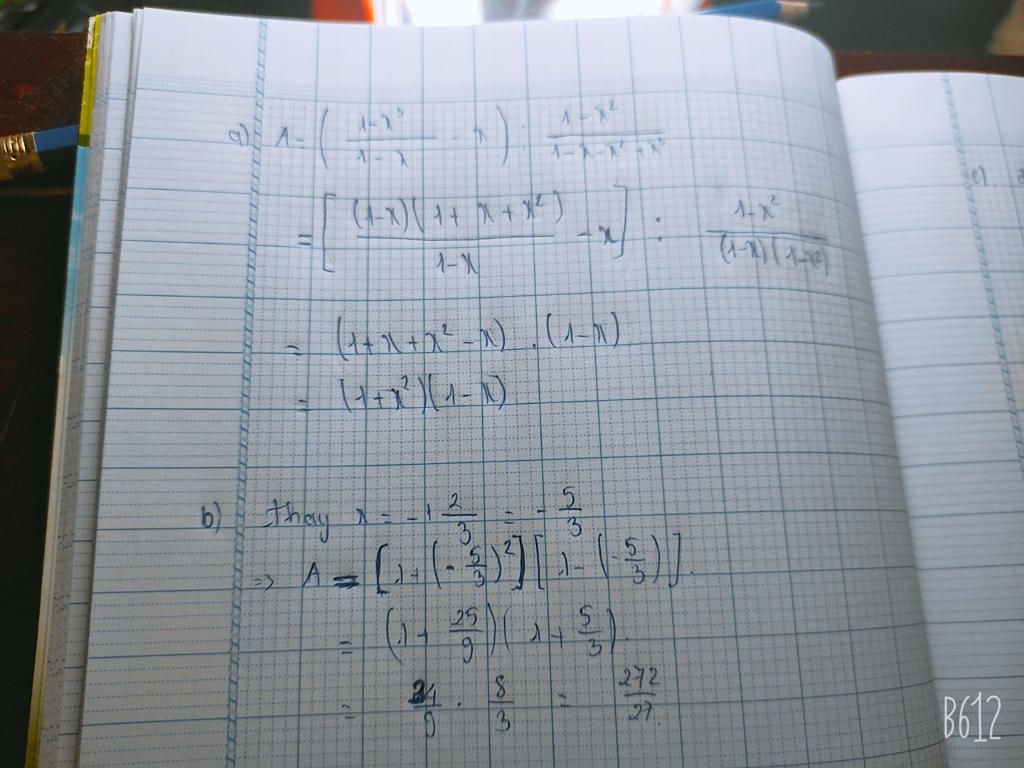 a) A = ( (1-x³)/(1-x) - x ) : (1-x²)/(1-x-x²+x³)
= [ (1-x)(1+x+x²)/(1-x) - x ] : (1-x²)/((1-x)(1-x²))
= (1+x+x²-x) . (1-x)
= (1+x²)(1-x)
b) thay x = -1 2/3 = - 5/3
=> A = [1+(-5/3)²][1-(-5/3)].
= (1+ 25/9)(1+ 5/3).
= 34/9 . 8/3 = 272/27.
c).
B612